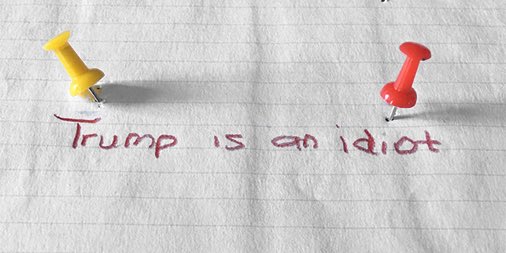 Trump is an idiot